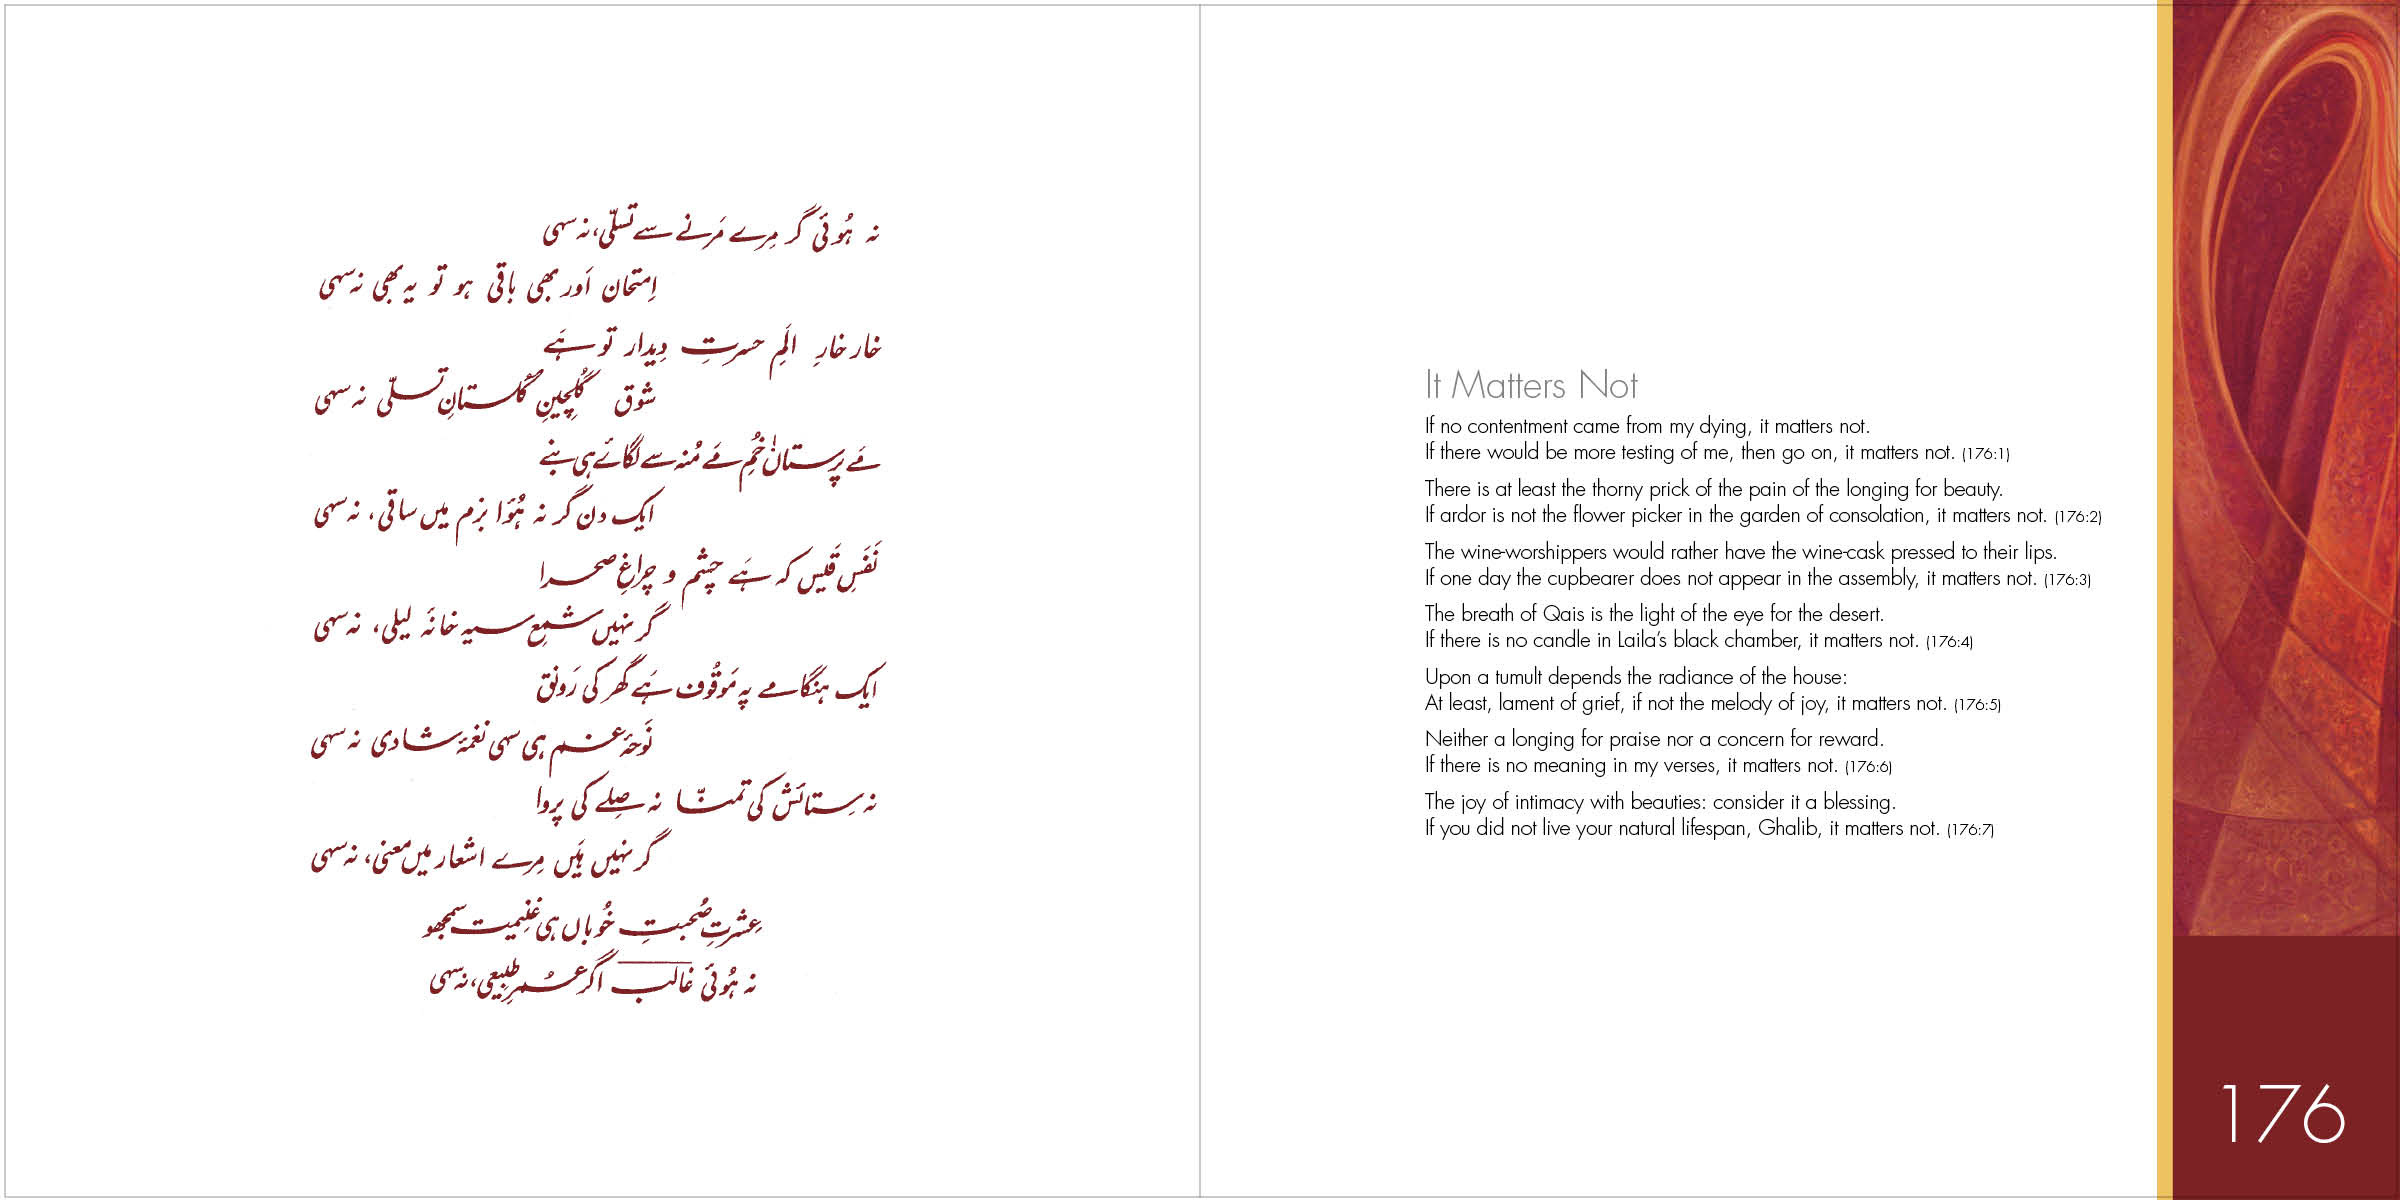 نہ ہُوئی گر مِرے مَرنے سے تسلّی، نہ سہی
اِمتحان اَور بھی باقی ہو تو یہ بھی نہ سہی
خار خارِ الَمِ حسرتِ دِیدار تو ہَے
شوق گُلچینِ گُلستانِ تسلّی نہ سہی
مَے پرستاں خُمِ مَے مُنہ سے لگائے ہی بنے
ایک دن گر نہ ہُوٗا بزم میں ساقی، نہ سہی
نَفَسِ قَیس کہ ہَے چشم و چراغِ صحرا
گر نہیں شمعِ سیہ خانَہ لیلی، نہ سہی
ایک ہنگامے پہ مَوقُوف ہَے گھر کی رَونق
نَوحۂ غم ہی سہی نغمۂ شادی نہ سہی
نہ سِتائش کی تمنّا نہ صِلے کی پروا
گر نہیں ہَیں مِرے اشعار میں معنی، نہ سہی
عِشرتِ صُحبتِ خُوباں ہی غنِیمت سمجھو
نہ ہُوئی غالب اگر عُمرِ طبِیعی، نہ سہی
It Matters Not
If no contentment came from my dying, it matters not.
If there would be more testing of me, then go on, it matters not. (176:1)
There is at least the thorny prick of the pain of the longing for beauty.
If ardor is not the flower picker in the garden of consolation, it matters not. (176:2)
The wine-worshippers would rather have the wine-cask pressed to their lips.
If one day the cupbearer does not appear in the assembly, it matters not. (176:3)
The breath of Qais is the light of the eye for the desert.
If there is no candle in Laila's black chamber, it matters not. (176:4)
Upon a tumult depends the radiance of the house:
At least, lament of grief, if not the melody of joy, it matters not. (176:5)
Neither a longing for praise nor a concern for reward.
If there is no meaning in my verses, it matters not. (176:6)
The joy of intimacy with beauties: consider it a blessing.
If you did not live your natural lifespan, Ghalib, it matters not. (176:7)
176